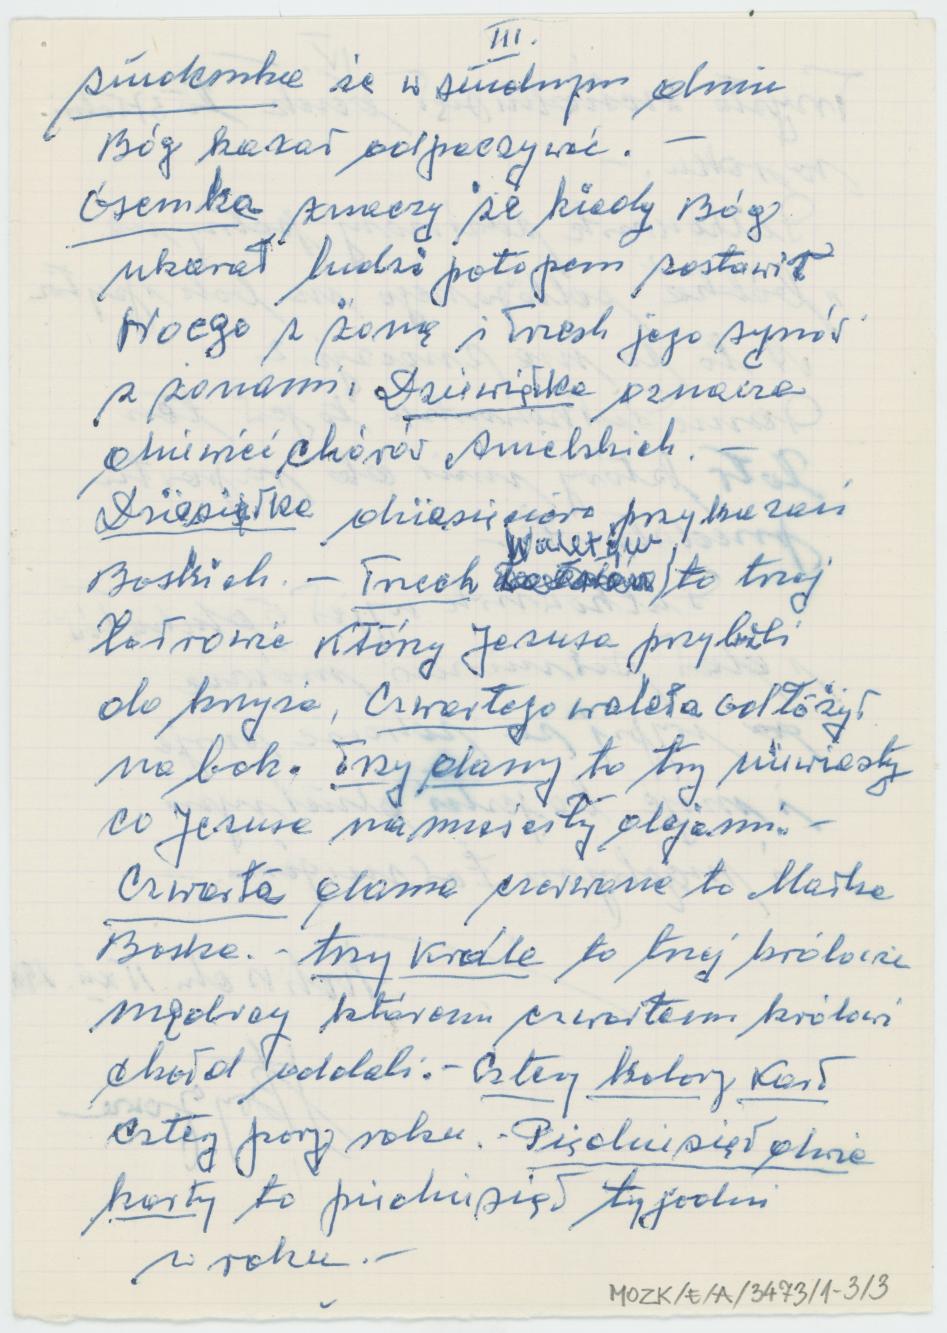 III.
siudemka że w siudmym dniu
Bóg kazał odpoczywać. —
Ósemka znaczy że kiedy Bóg
ukarał ludzi potopem zostawił
Noego z żoną i trzech jego synów
z żonami, Dziewiątka oznacza
dziewięć chórów Anielskich. —
Dziesiątka dziesięcioro przykazań
Waletów
Boskich. — Trzech to trzej
Łotrowie którzy Jezusa przybili
do krzyża, Czwartego waleta odłożył
na bok. Trzy damy to trzy niewiasty
co Jezusa namaściły olejami. —
Czwarta dama czerwona to Matka
Boska. - trzy Króle to trzej królowie
mędrcy któremu czwartemu królowi
chołd oddali. - Cztery kolory kart
cztery pory roku. - Pięćdziesiąt dwie
karty to pięćdziesiąt tygodni
w roku. —
MOZK/E/A/3473/1-3/3